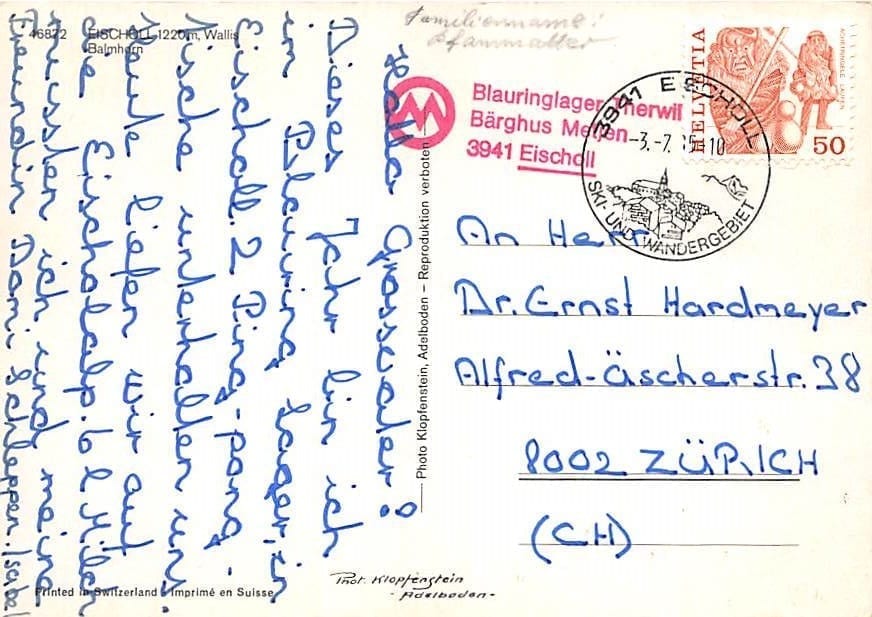 46872 EISCHOLL 1220m, Wallis
Balmhorn
Familienname:
Pfammatter
Hallo Grossvater!
Dieses Jahr bin ich
im Blauring lager, in
Eischoll. 2 Ping-pong-
tische unterhalten uns.
Heute liefen wir auf
die Eischolalp. 6 l Milch
mussten ich und meine
Freundin Domi schleppen. Isabel
Blauringlager herwil
Bärghus Metjen
3941 Eischoll
3941 EISCHOLL
-3.-7. 85-10
SKI- UND WANDERGEBIET
HELVETIA
ACHETRINGELE LAUPEN
50
An Herr
Dr. Ernst Hardmeyer
Alfred-Äscherstr. 38
8002 ZÜRICH
(CH)
Photo Klopfenstein, Adelboden – Reproduktion verboten
Printed in Switzerland Imprimé en Suisse
Phot. Klopfenstein
- Adelboden -